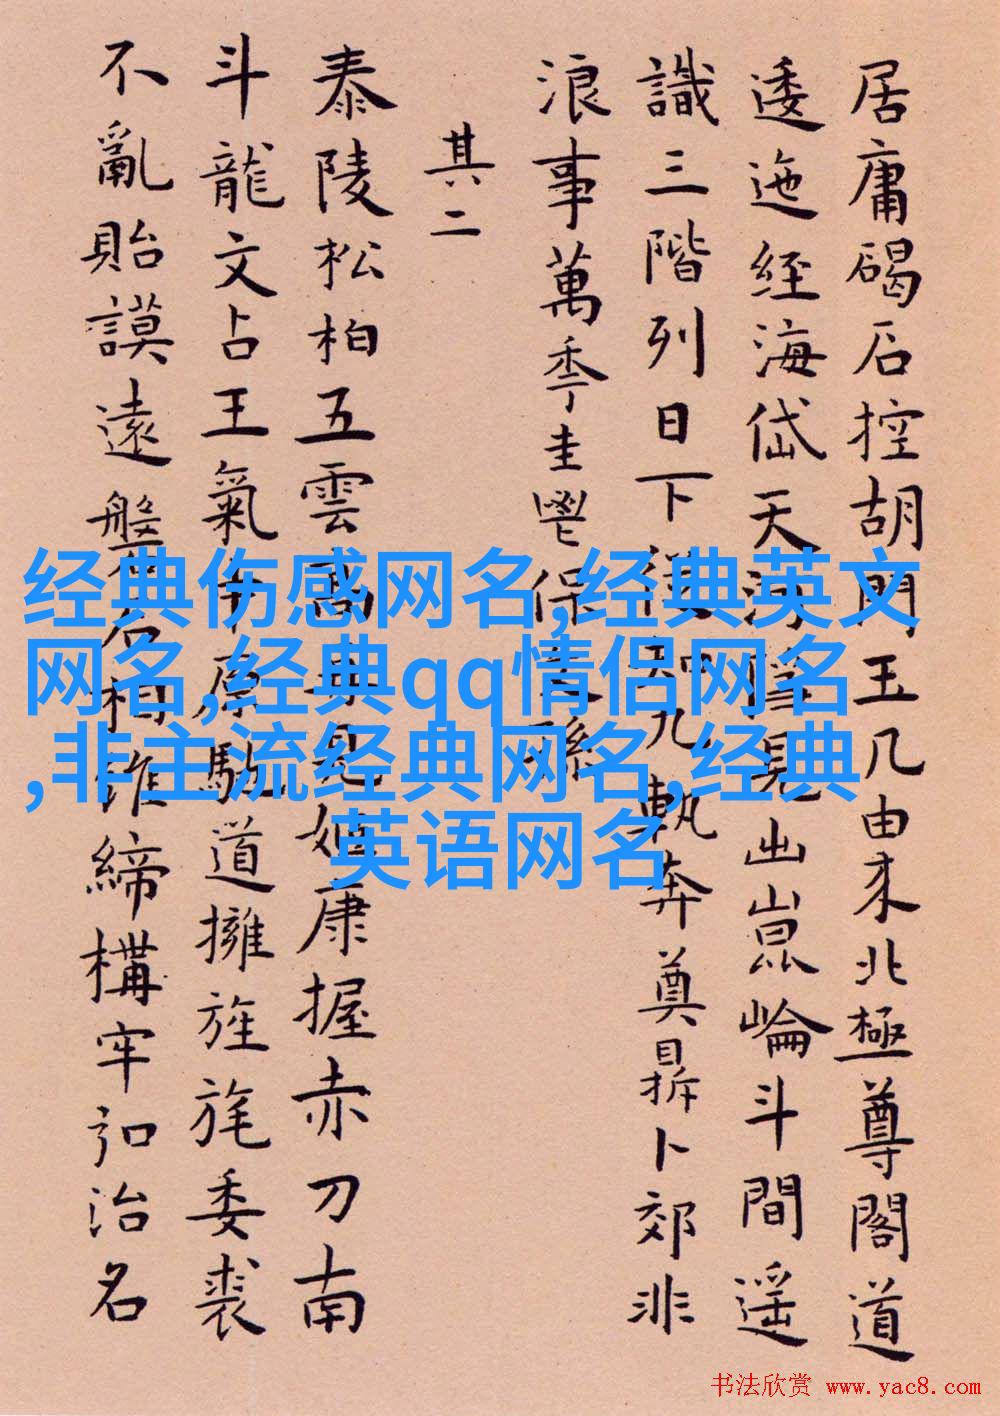 居庸碣石控胡門王几由来北極尊閣道
逶迤經海岱天河隱見出崑崙斗間遥
識三階列日下從知九執奔奠鼎卜郊非
浪事萬季圭鬯保孫
其二
泰陵松柏五雲高見姬康握赤刀南
斗龍文占王氣原馳道擁旌旄委裘
不亂貽謨遠盤石相維締構牢扣治名
经典伤感网名,经典英文
网名,经典qq情侣网名
,非主流经典网名,经典
英语网名
书法欣赏 www.yac8.com